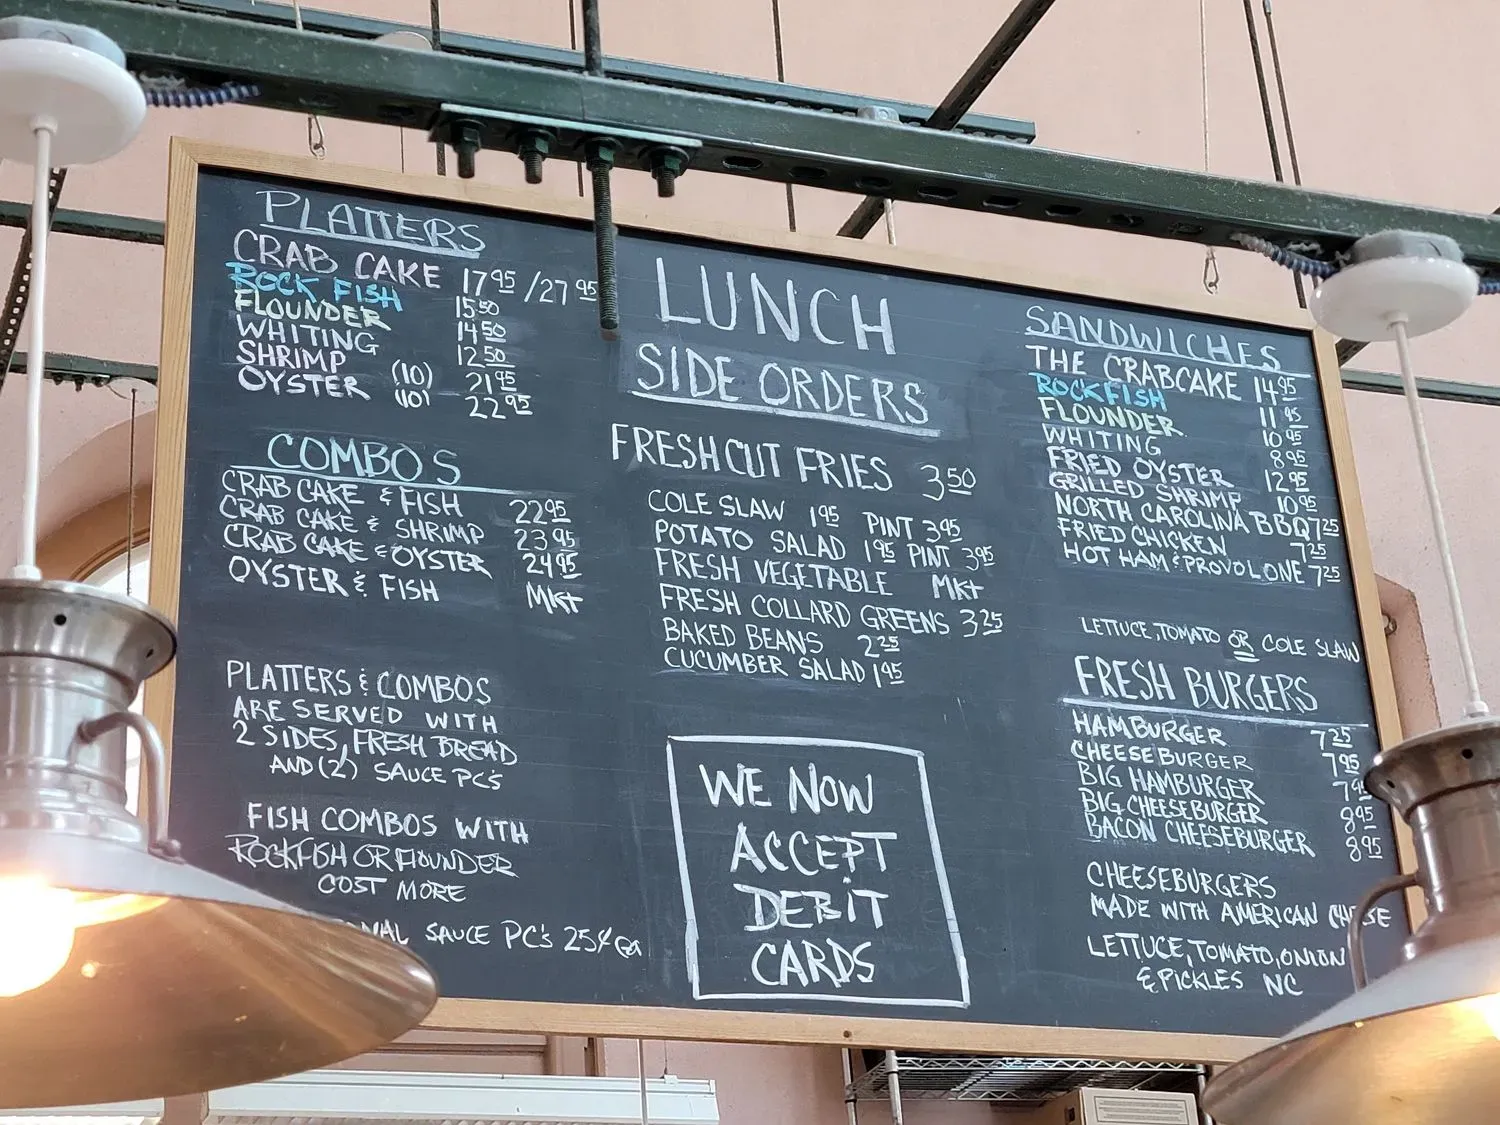 PLATTERS
CRAB CAKE 17 95 / 27 95
ROCK FISH 15 50
FLOUNDER 14 50
WHITING 12 50
SHRIMP (10) 21 95
OYSTER (10) 22 95
COMBOS
CRAB CAKE & FISH 22 95
CRAB CAKE & SHRIMP 23 95
CRAB CAKE & OYSTER 24 95
OYSTER & FISH MKt
PLATTERS & COMBOS
ARE SERVED WITH
2 SIDES, FRESH BREAD
AND (2) SAUCE PC'S
FISH COMBOS WITH
ROCKFISH OR FLOUNDER
COST MORE
SAUCE PC'S 25¢ ea
LUNCH
SIDE ORDERS
FRESH CUT FRIES 3 50
COLE SLAW 1 95 PINT 3 95
POTATO SALAD 1 95 PINT 3 95
FRESH VEGETABLE MKt
FRESH COLLARD GREENS 3 25
BAKED BEANS 2 25
CUCUMBER SALAD 1 95
WE NOW
ACCEPT
DEBiT
CARDS
SANDWICHES
THE CRABCAKE 14 95
ROCKFISH 11 95
FLOUNDER 10 95
WHITING 8 95
FRIED OYSTER 12 95
GRILLED SHRIMP 10 95
NORTH CAROLINA BBQ 7 25
FRIED CHICKEN 7 25
HOT HAM & PROVOLONE 7 25
LETTUCE, TOMATO OR COLE SLAW
FRESH BURGERS
HAMBURGER 7 25
CHEESEBURGER 7 95
BIG HAMBURGER 7 95
BIG CHEESEBURGER 8 95
BACON CHEESEBURGER 8 95
CHEESEBURGERS
MADE WITH AMERICAN CHEESE
LETTUCE, TOMATO, ONION
& PICKLES NC